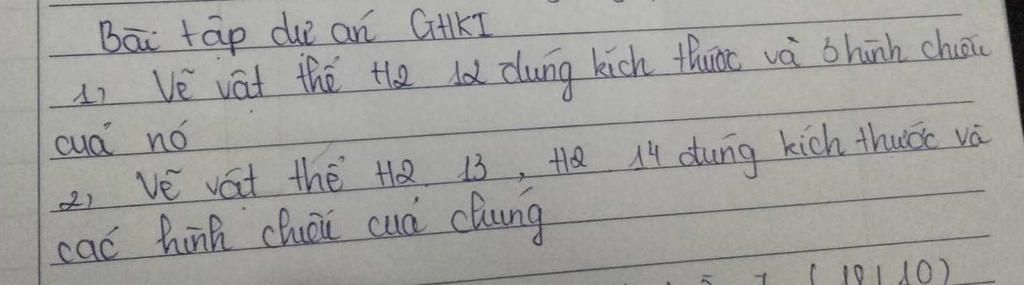 Bài tập dự án GHKI
1, Vẽ vật thể H2 12 đúng kích thước và 3 hình chiếu
của nó
2, Vẽ vật thể H2. 13, H2. 14 đúng kích thước và
các hình chiếu của chúng
(19/10)